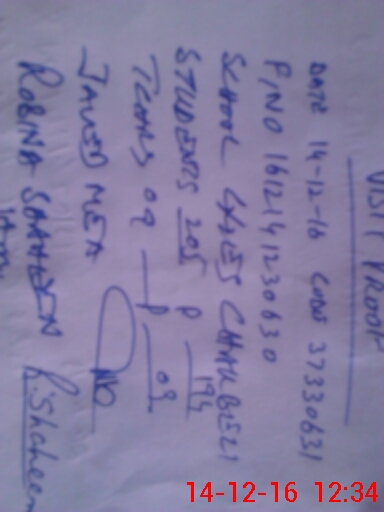 VISIT PROOF
DATE 14-12-16 CODE 37330631
P,NO 16121412 30630
SCHOOL GGES CHAKBELI
STUDENTS 205 P 194
TEAHS 09 P 09
JAVED MEA
ROBINA SHAHEEN R.Shaheen
14-12-16 12:34